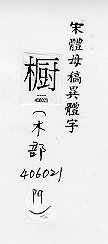 宋體母稿異體字
橱
406021
(木部
406021
P9)